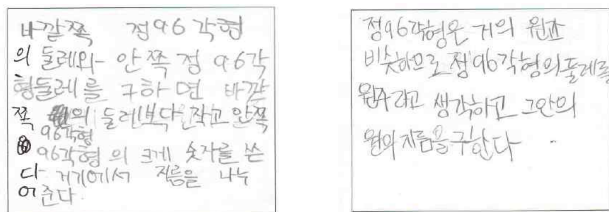 바깥쪽 정96각형
의 둘레와 안쪽 정 96각
형둘레를 구하면 바깥
쪽 의 둘레보다 작고 안쪽
96각형
96각형의 크게 숫자를 쓴
다 거기에서 지름을 나누
어준다.
정96각형은 거의 원과
비슷하므로 정96각형의둘레를
원주라고 생각하고 그안의
원의지름을구한다.